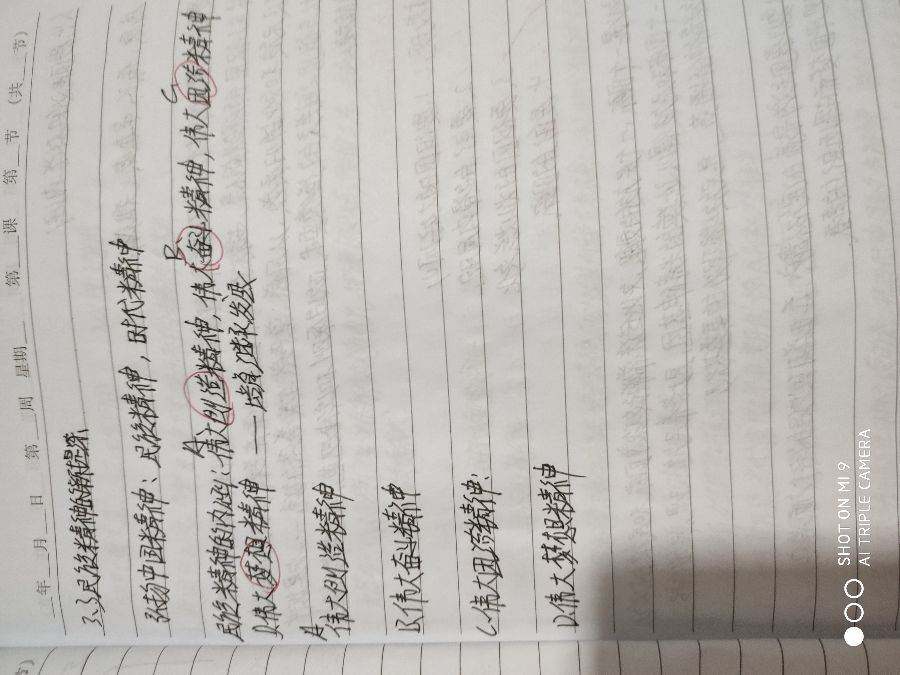 年 月 日 第 周 星期 第 课 第 节 (共 节)
3.3民族精神的新
弘扬中国精神：民族精神，时代精神
民族精神的内涵：A伟大创造精神，伟大B奋斗精神，伟大C团结精神
D伟大梦想精神 ——培育,继承,发展
A.伟大创造精神
B.伟大奋斗精神
C.伟大团结精神.
D.伟大梦想精神
SHOT ON MI 9
AI TRIPLE CAMERA